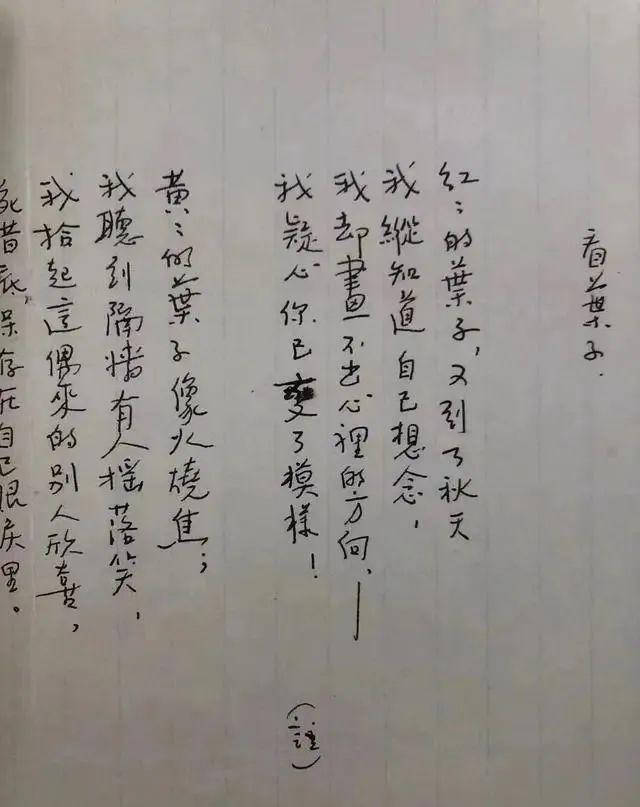 看葉子.
红〻的葉子，又到了秋天
我縱知道自己想念，
我却畫不出心裡的方向，——
我疑心你已變了模樣！
(註)
黃〻的葉子像火燒焦；
我聽到隔墻有人摇落笑，
我拾起這偶來的别人欣喜，
保存在自己眼底里。